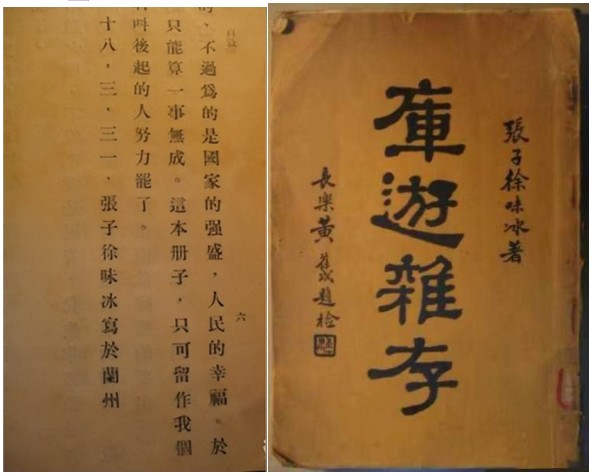 六
的、不過爲的是國家的强盛，人民的幸福。於
只能算一事無成。這本册子，只可留作我個
叫後起的人努力罷了。
十八，三，三一，張子徐味冰寫於蘭州
張子徐味冰著
庫遊雜存
長樂黃葆戉題檢